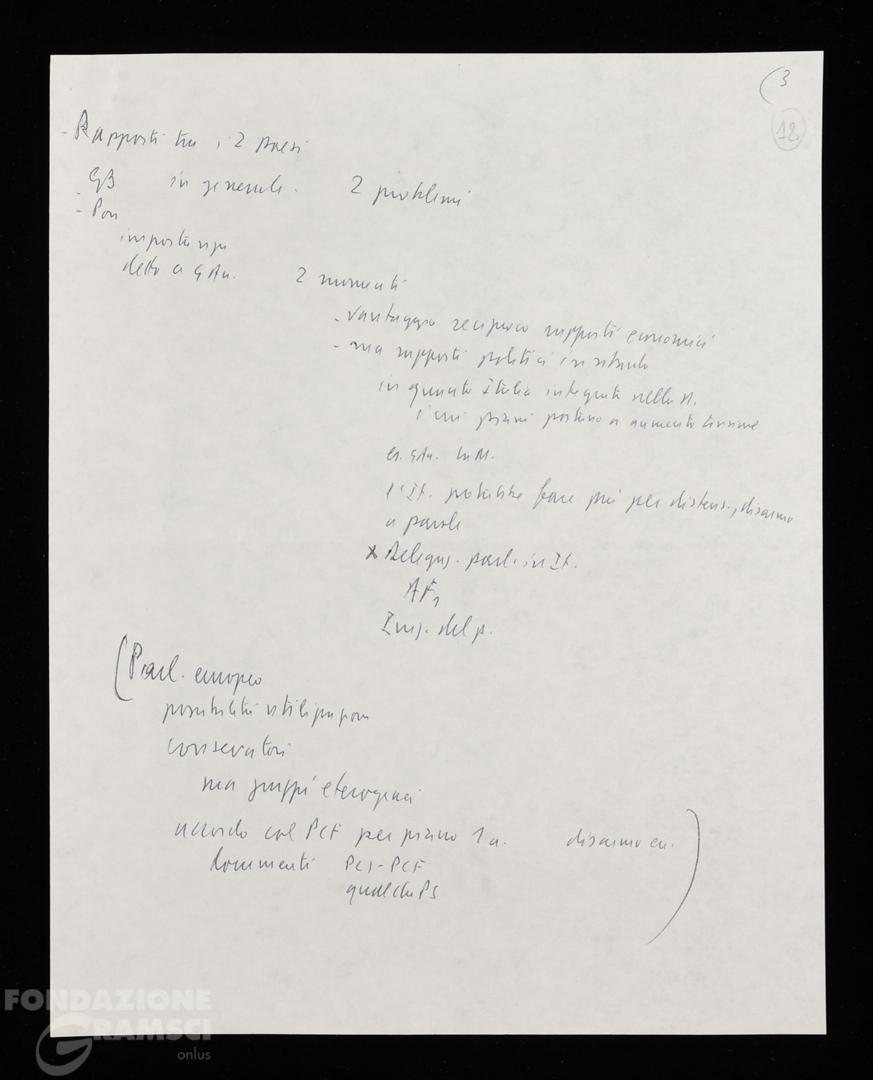 (3
12
- Rapporti tra i 2 paesi
- GB in generale. 2 problemi
- Pon
importanza
detto a
2 momenti
- vantaggio reciproco rapporti economici
- ma rapporti politici in
in quanto Italia integrata nella N.
i cui piani portano a aumento tensione
es.
l'It. potrebbe fare più per distens., disarmo
a parole
x Delegaz. parl. in It.
AF,
Inv. del p.
(Parl. europeo
possibilità utili
conservatori
ma gruppi eterogenei
accordo col PCF per primo 1 a. disarmo eu.)
documenti PCI-PCF
qualche PS
FONDAZIONE
GRAMSCI
onlus